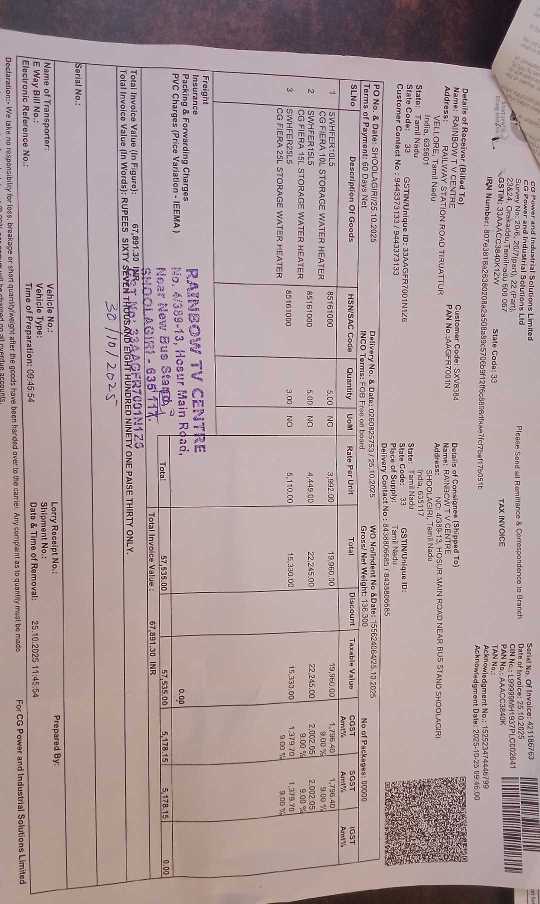 CG Power and Industrial Solutions Limited
CG Power and Industrial Solutions Ltd
GSTIN: 33AAACC3840K1ZW
State Code: 33
Please Send all Remittance & Correspondence to Branch
TAX INVOICE
Date of Invoice: 25.10.2025
PAN No.: AAACC3840K
TAN No.:
Acknowledgment Date: 2025-10-25 09:46:00
IRN Number:
Details of Receiver (Billed To)
Name: RAINBOW T V CENTRE
Address: RAILWAY STATION ROAD TIRUATTUR
VELLORE, Tamil Nadu
India, 635601
State: Tamil Nadu
State Code: 33
GSTIN/Unique ID: 33AAGFR7001N1Z6
Customer Contact No: 9443373133 / 9443373133
Customer Code: SXV8384
PAN No.:AAGFR7001N
Details of Consignee (Shipped To)
Name: RAINBOW T V CENTRE
Address: NO: 4/089-13, HOSUR MAIN ROAD NEAR BUS STAND SHOOLAGIRI
SHOOLAGIRI, Tamil Nadu
India, 635117
State: Tamil Nadu
State Code: 33
GSTIN/Unique ID:
Place of Supply: Tamil Nadu
Delivery Contact No:
PO No. & Date: SHOOLAGIRI/25.10.2025
Terms of Payment: 60 Days Net
Delivery No. & Date: 0260825753 / 25.10.2025
INCO Terms: FOB Free on board
WO No/Indent No &Date: 155624064/25.10.2025
Gross/ Net Weight: 136.300
No of Packages: 00000
SI.No Description Of Goods HSN/SAC Code Quantity UoM Rate Per Unit Total Discount Taxable Value CGST Amt% SGST Amt% IGST Amt%
1 SWHFER10L5 85161000 5.00 NO 3,992.00 19,960.00 19,960.00 1,796.40 1,796.40
CG FIERA 10L STORAGE WATER HEATER 9.00 % 9.00 %
2 SWHFER15L5 85161000 5.00 NO 4,449.00 22,245.00 22,245.00 2,002.05 2,002.05
CG FIERA 15L STORAGE WATER HEATER 9.00 % 9.00 %
3 SWHFER25L5 85161000 3.00 NO 5,110.00 15,330.00 15,330.00 1,379.70 1,379.70
CG FIERA 25L STORAGE WATER HEATER 9.00 % 9.00 %
Freight
Insurance
Packing & Forwarding Charges
PVC Charges (Price Variation - IEEMA)
0.00
Total 57,535.00 57,535.00 5,178.15 5,178.15 0.00
Total Invoice Value (In Figure): 67,891.30 INR
Total Invoice Value : 67,891.30 INR
Total Invoice Value (In Words): RUPEES SIXTY SEVEN THOUSAND EIGHT HUNDRED NINETY ONE PAISE THIRTY ONLY.
RAINBOW TV CENTRE
No. 4/089-13, Hosur Main Road,
Near New Bus Stand,
SHOOLAGIRI - 635 117.
33AAGFR7001N1Z6
30/10/2025
Serial No.:
Name of Transporter:
E Way Bill No.:
Electronic Reference No.:
Vehicle No.:
Vehicle Type:
Time of Preparation: 09:45:54
Lorry Receipt No.:
Shipment No.:
Date & Time of Removal: 25.10.2025 11:45:54
Prepared By:
Declaration:- We take no responsibility for loss, breakage or short quantity/weight after the goods have been handed over to the carrier. Any complaint as to quantity must be made
For CG Power and Industrial Solutions Limited